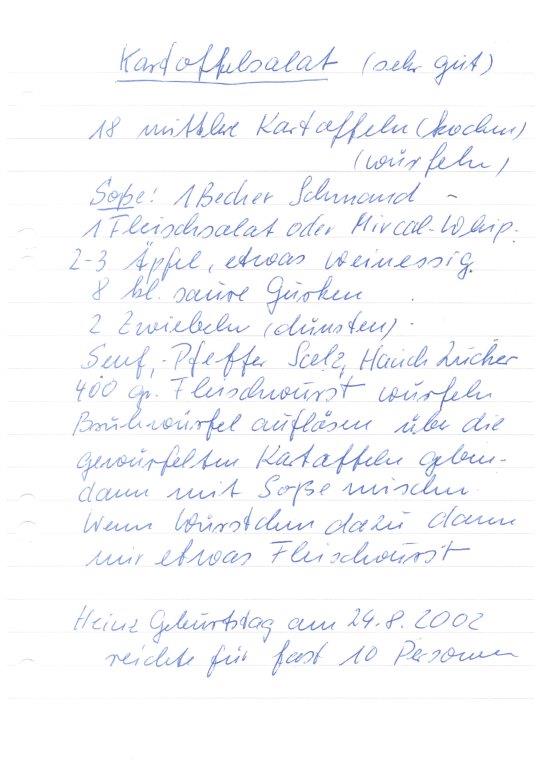 Kartoffelsalat (sehr gut)
18 mittlere Kartoffeln (kochen)
(würfeln)
Soße: 1 Becher Schmand -
1 Fleischsalat oder Mircal-Whip.
2-3 Äpfel, etwas Weinessig.
8 kl. saure Gurken
2 Zwiebeln (dünsten).
Senf, Pfeffer Salz, Hauch Zucker
400 gr. Fleischwurst würfeln
Brühwürfel auflösen über die
gewürfelten Kartoffeln geben-
dann mit Soße mischen.
Wenn Würstchen dazu dann
nur etwas Fleischwurst
Heinz Geburtstag am 24.8.2002
reichte für fast 10 Personen